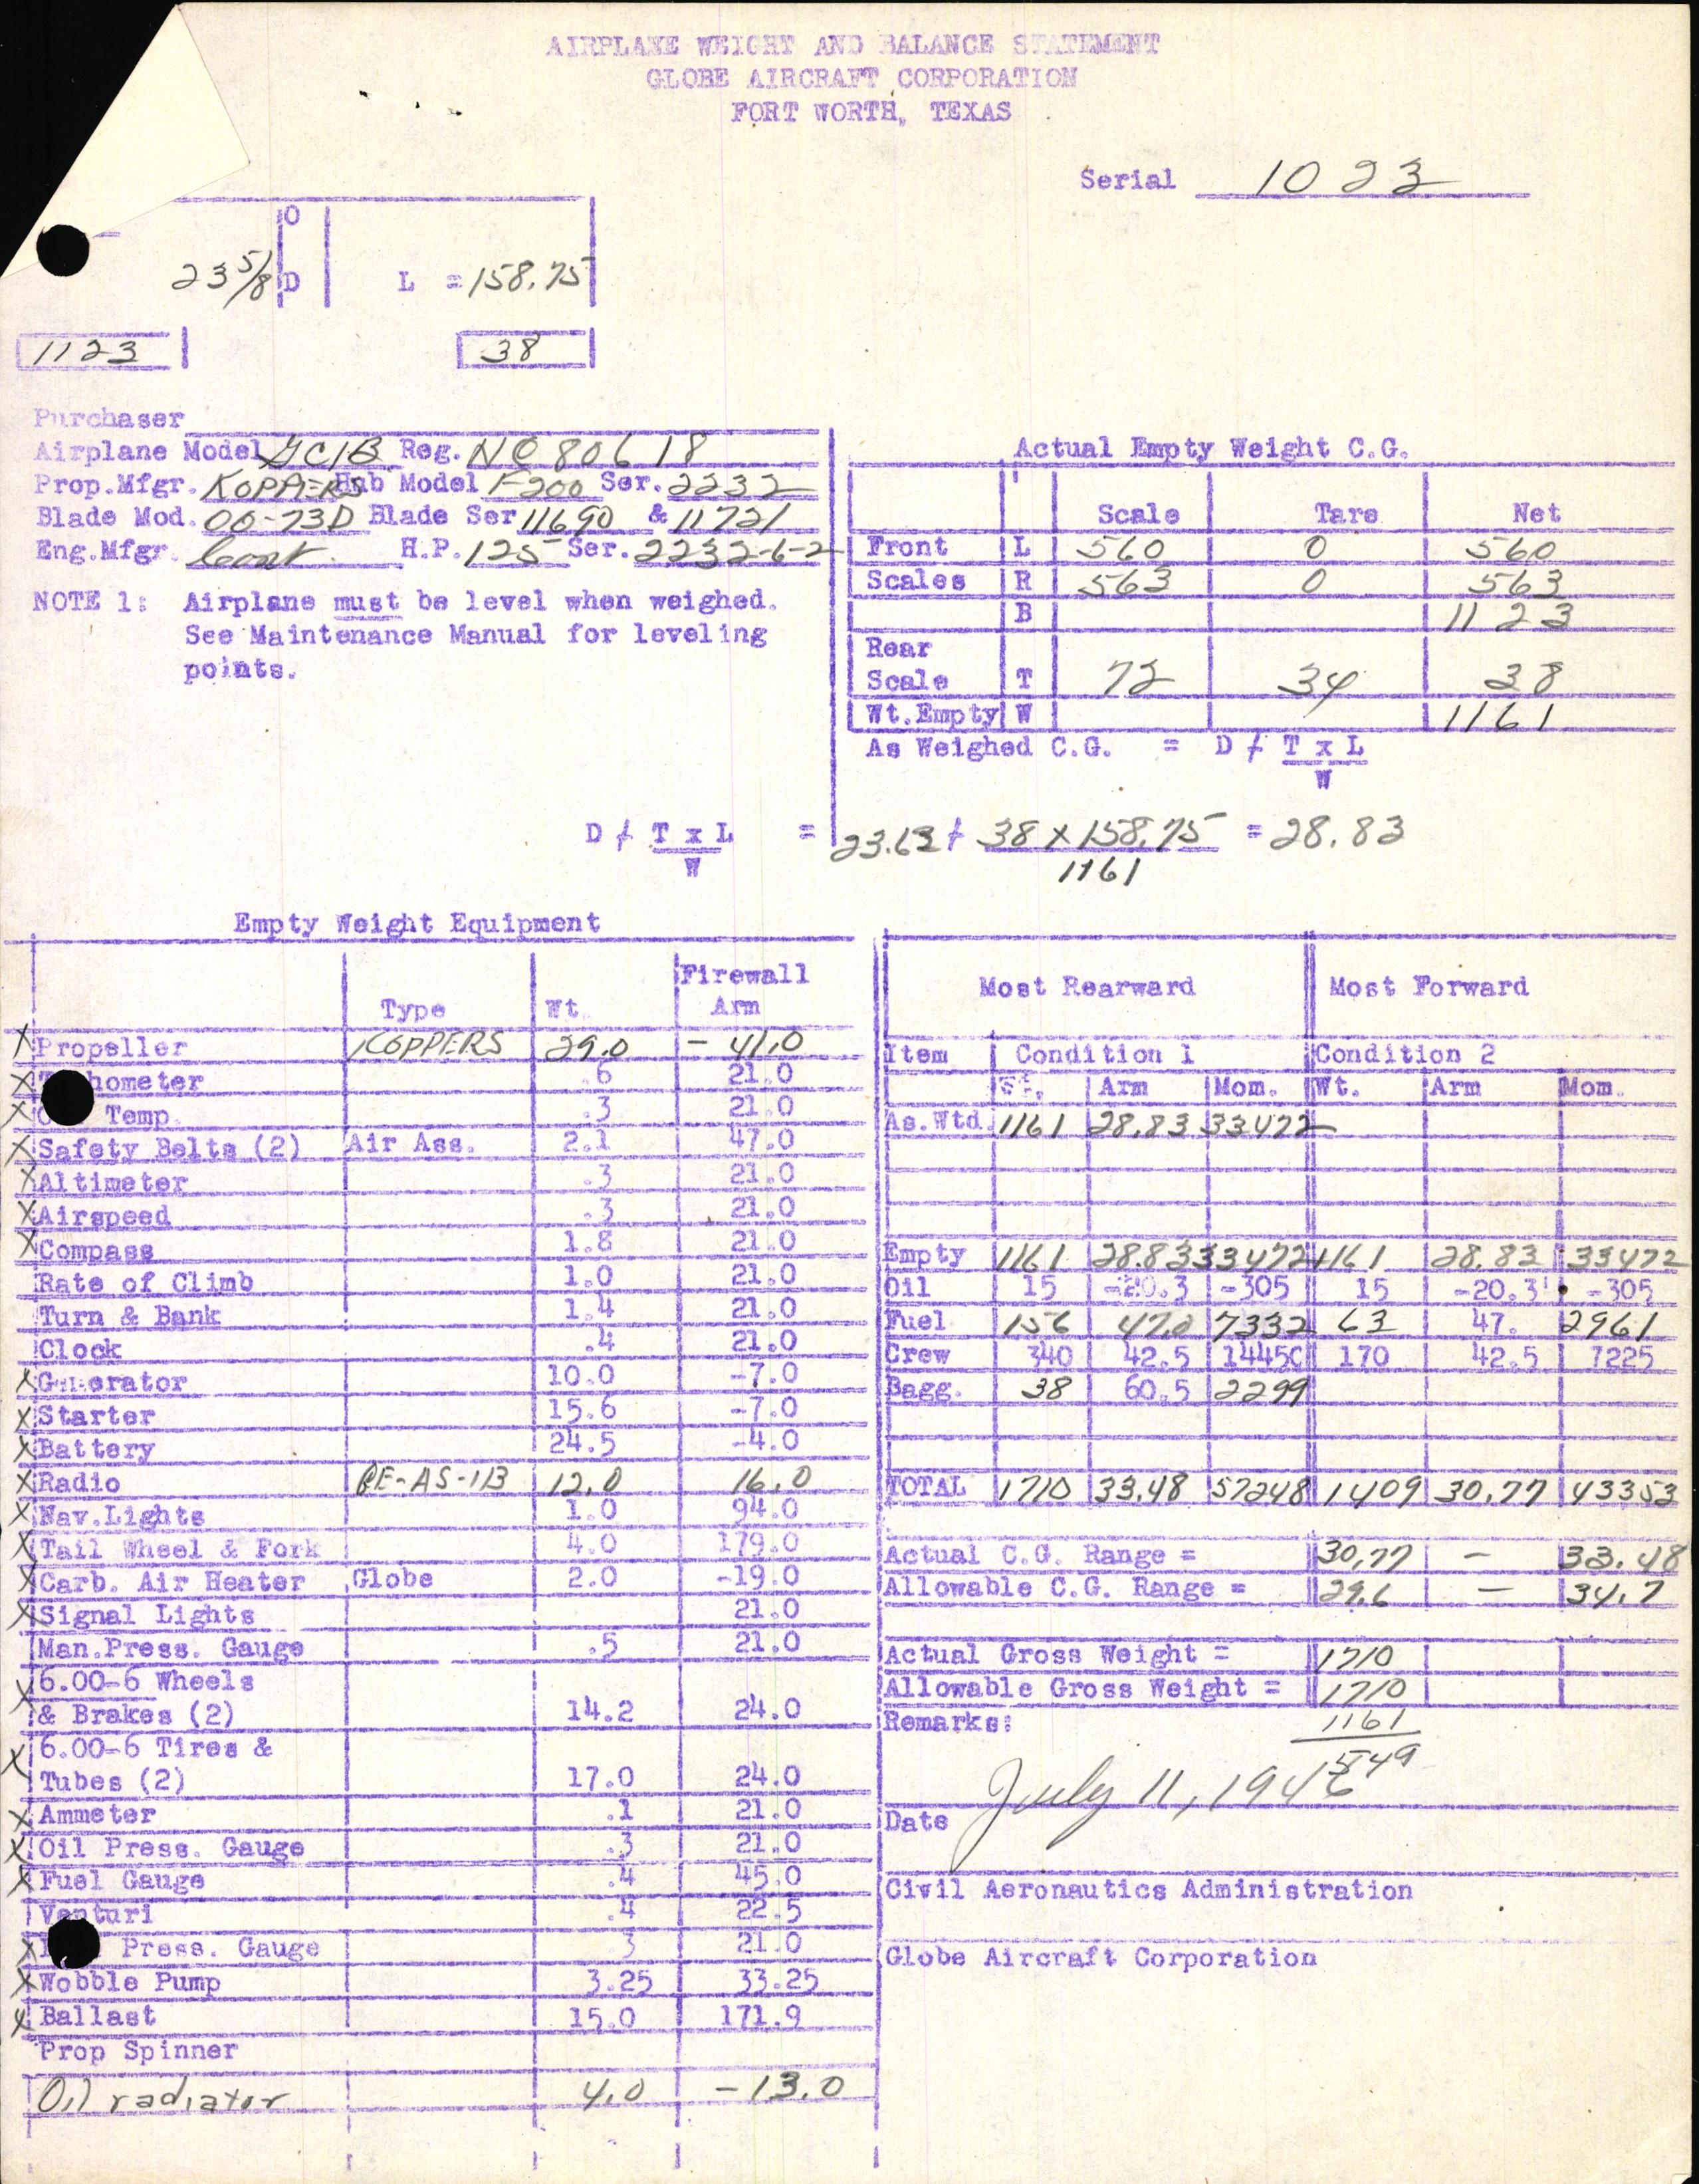 AIRPLANE WEIGHT AND BALANCE STATEMENT
GLOBE AIRCRAFT CORPORATION
FORT WORTH, TEXAS
Serial 1023
O
23 5/8 D L = 158.75
1123 38
Purchaser
Airplane Model GC1B Reg. NC 80618
Prop.Mfgr. KOPPERS Hub Model F200 Ser. 2232
Blade Mod. 00-73D Blade Ser 11690 & 11721
Eng.Mfgr. Cont. H.P. 125 Ser. 2232-6-2
NOTE 1: Airplane must be level when weighed.
See Maintenance Manual for leveling
points.
Actual Empty Weight C.G.
Scale Tare Net
Front L 560 0 560
Scales R 563 0 563
B 1123
Rear
Scale T 72 34 38
Wt.Empty W 1161
As Weighed C.G. = D + T x L
W
D + T x L = 23.63 + 38 x 158.75 = 28.83
W 1161
Empty Weight Equipment
Type Wt. Firewall
Arm
X Propeller KOPPERS 29.0 - 41.0
X T hometer .6 21.0
X O Temp. .3 21.0
X Safety Belts (2) Air Ass. 2.1 47.0
X Altimeter .3 21.0
X Airspeed .3 21.0
X Compass 1.8 21.0
Rate of Climb 1.0 21.0
Turn & Bank 1.4 21.0
Clock .4 21.0
X Generator 10.0 -7.0
X Starter 15.6 -7.0
X Battery 24.5 -4.0
X Radio GE-AS-1B 12.0 16.0
X Nav.Lights 1.0 94.0
X Tail Wheel & Fork 4.0 179.0
X Carb. Air Heater Globe 2.0 -19.0
X Signal Lights 21.0
Man.Press. Gauge .5 21.0
6.00-6 Wheels
X & Brakes (2) 14.2 24.0
X 6.00-6 Tires &
Tubes (2) 17.0 24.0
X Ammeter .1 21.0
X Oil Press. Gauge .3 21.0
X Fuel Gauge .4 45.0
Venturi .4 22.5
X Press. Gauge .3 21.0
X Wobble Pump 3.25 33.25
X Ballast 15.0 171.9
Prop Spinner
Oil radiator 4.0 -13.0
Most Rearward Most Forward
Item Condition 1 Condition 2
Wt. Arm Mom. Wt. Arm Mom.
As.Wtd. 1161 28.83 33472
Empty 1161 28.83 33472 1161 28.83 33472
Oil 15 -20.3 -305 15 -20.3 -305
Fuel 156 47.0 7332 63 47. 2961
Crew 340 42.5 14450 170 42.5 7225
Bagg. 38 60.5 2299
TOTAL 1710 33.48 57248 1409 30.77 43353
Actual C.G. Range = 30.77 - 33.48
Allowable C.G. Range = 29.6 - 34.7
Actual Gross Weight = 1710
Allowable Gross Weight = 1710
Remarks: 1161
549
Date July 11, 1946
Civil Aeronautics Administration
Globe Aircraft Corporation